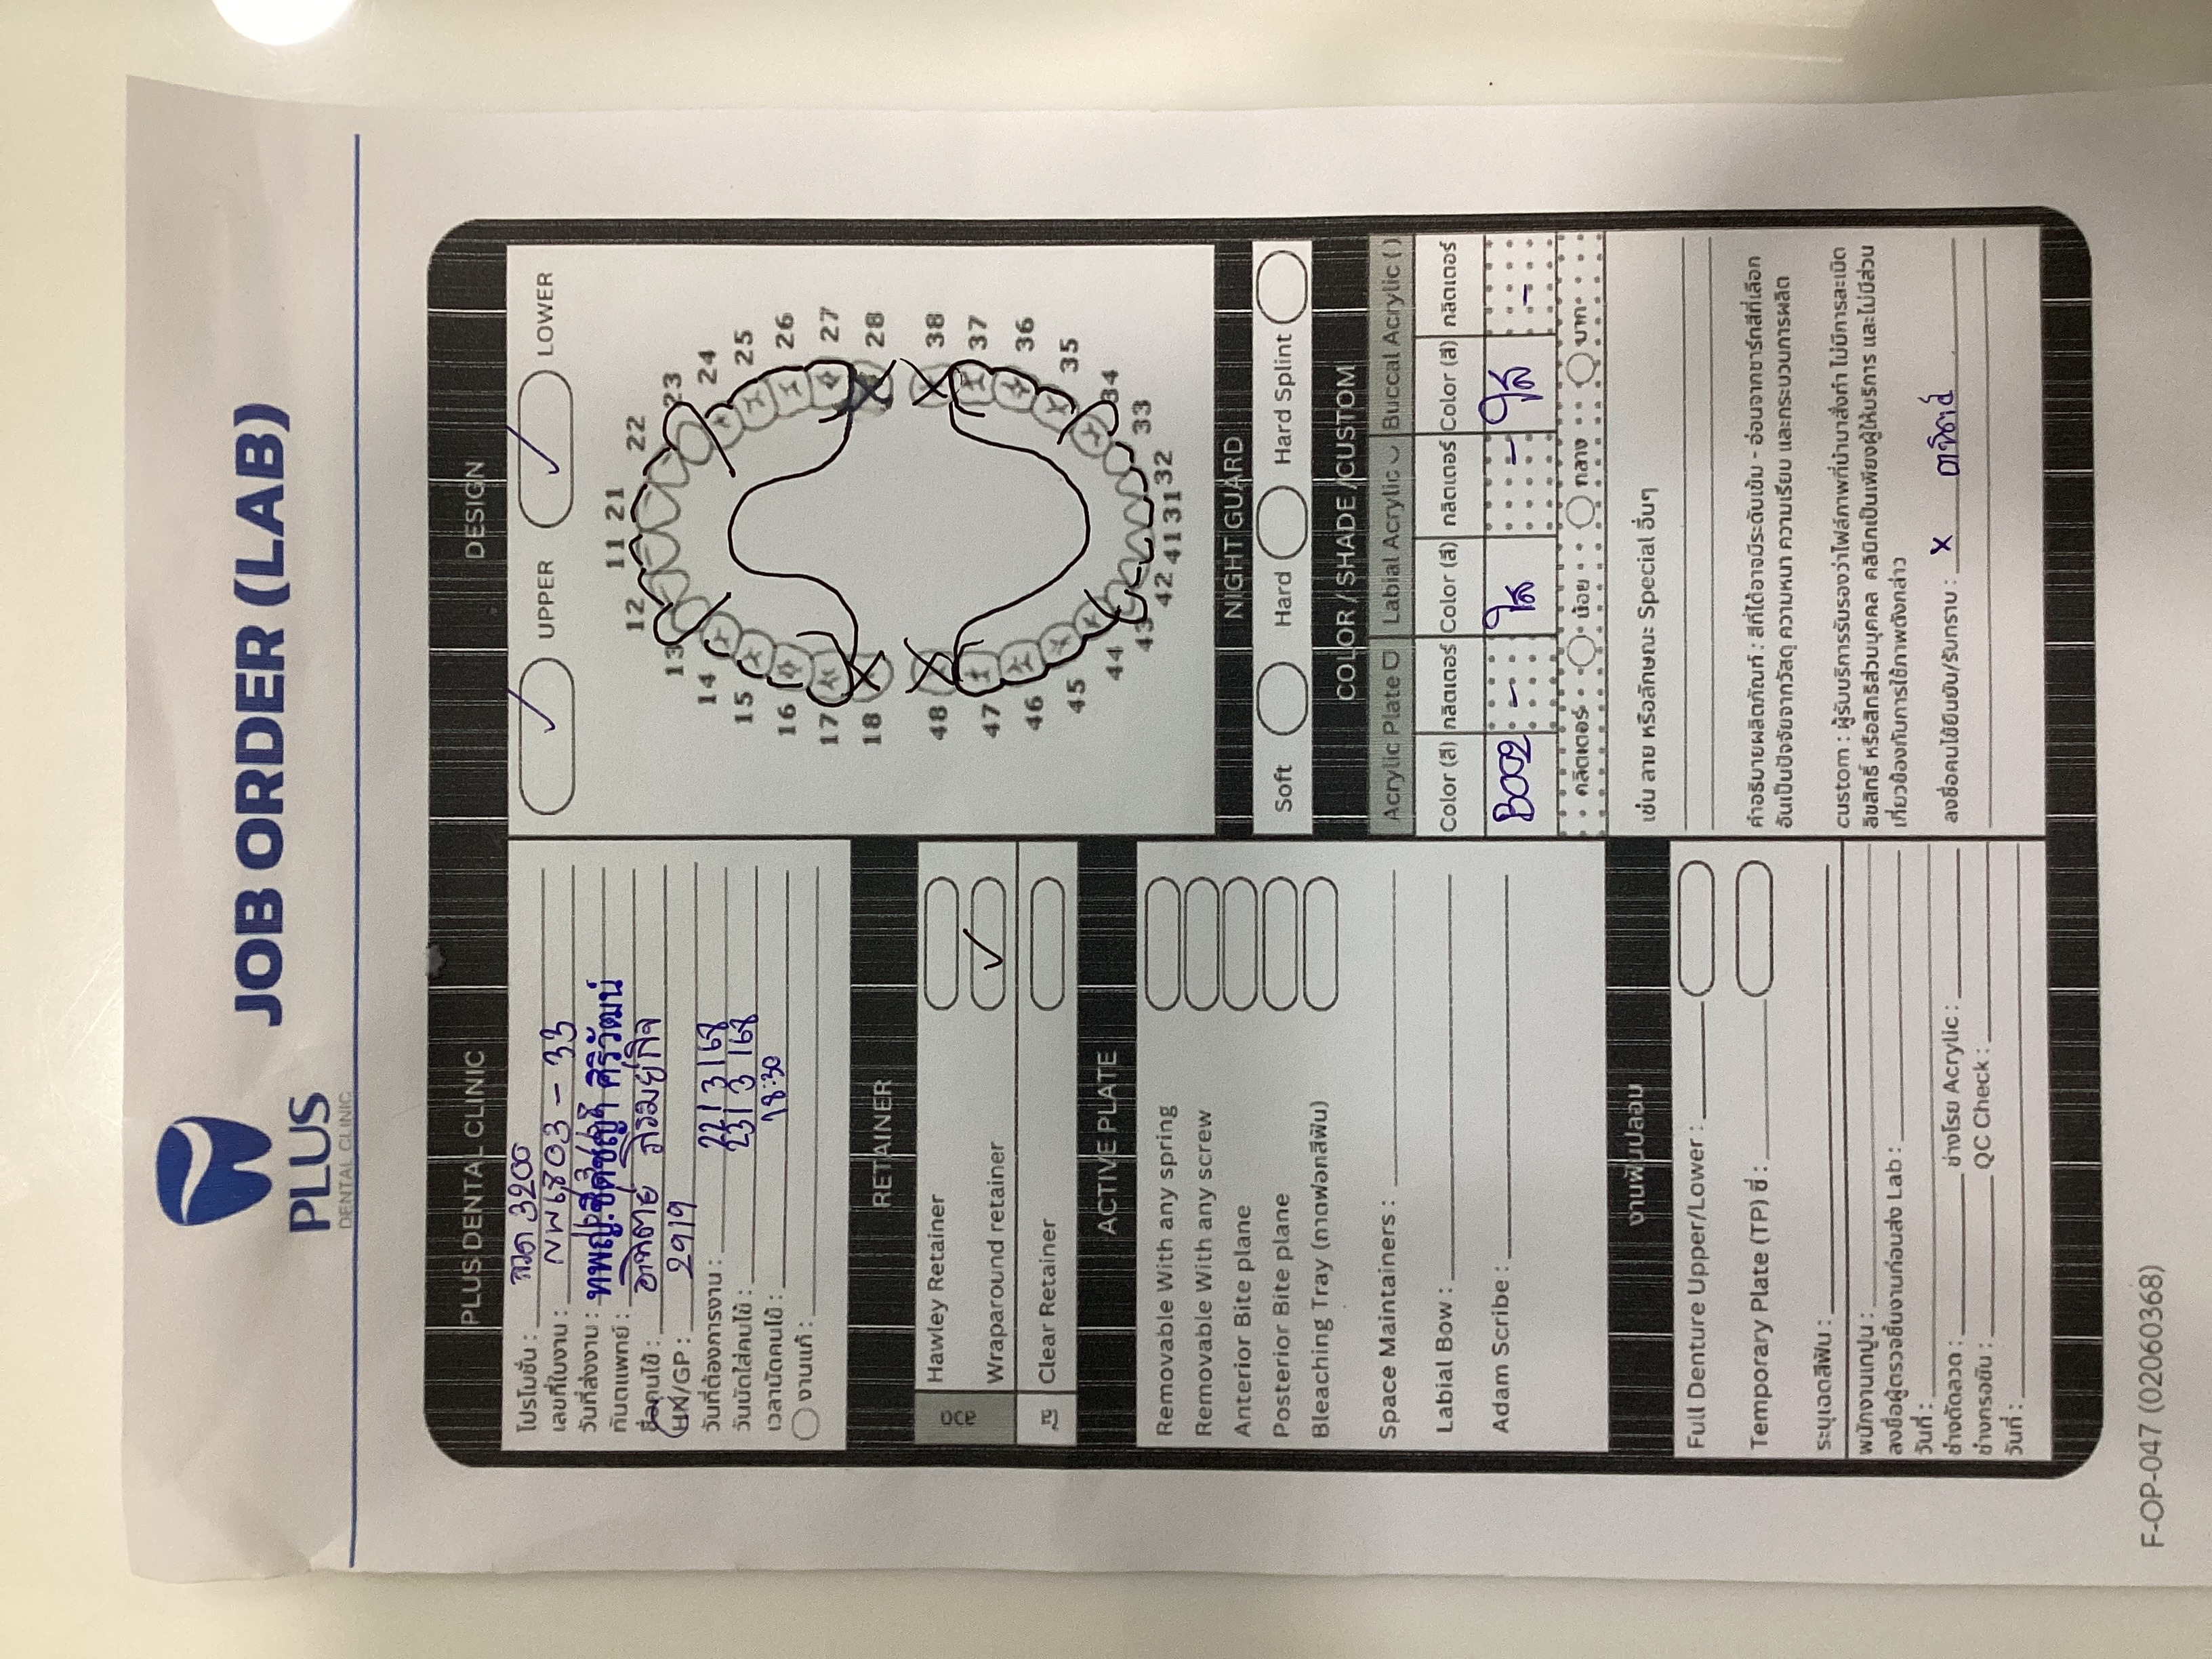 PLUS
DENTAL CLINIC
JOB ORDER (LAB)
PLUS DENTAL CLINIC
โปรโมชั่น : ลวด 3200
เลขที่ใบงาน : NW6803 - 33
วันที่ส่งงาน :
ทันตแพทย์ : ทพญ.ชิดชญา ศิริวัฒน์
ชื่อคนไข้ : อาทิตย์ ภิรมย์กิจ
HN/GP : 2919
วันที่ต้องการงาน : 22/3/68
วันนัดใส่คนไข้ : 23/3/68
เวลานัดคนไข้ : 18:30
งานแก้ :
RETAINER
ลวด
Hawley Retainer
Wraparound retainer ✓
ใส
Clear Retainer
ACTIVE PLATE
Removable With any spring
Removable With any screw
Anterior Bite plane
Posterior Bite plane
Bleaching Tray (ถาดฟอกสีฟัน)
Space Maintainers :
Labial Bow :
Adam Scribe :
งานฟันปลอม
Full Denture Upper/Lower :
Temporary Plate (TP) ซี่ :
ระบุเฉดสีฟัน :
พนักงานเทปูน :
ลงชื่อผู้ตรวจชิ้นงานก่อนส่ง Lab :
วันที่ :
ช่างดัดลวด : ช่างโรย Acrylic :
ช่างกรอขัน : QC Check :
วันที่ :
DESIGN
✓ UPPER ✓ LOWER
11 21
12 22
13 23
14 24
15 25
16 26
17 27
18 28
48 38
47 37
46 36
45 35
44 34
43 33
42 41 31 32
NIGHT GUARD
Soft Hard Hard Splint
COLOR / SHADE /CUSTOM
Acrylic Plate Labial Acrylic Buccal Acrylic ( )
Color (สี) กลิตเตอร์ Color (สี) กลิตเตอร์ Color (สี) กลิตเตอร์
B002 - ใส - ใส -
กลิตเตอร์ น้อย กลาง มาก
เช่น ลาย หรือลักษณะ Special อื่นๆ
คำอธิบายผลิตภัณฑ์ : สีที่ได้อาจมีระดับเข้ม - อ่อนจากชาร์ทสีที่เลือก
อันเป็นปัจจัยจากวัสดุ ความหนา ความเรียบ และกระบวนการผลิต
custom : ผู้รับบริการรับรองว่าไฟล์ภาพที่นำมาสั่งทำ ไม่มีการละเมิด
ลิขสิทธิ์ หรือสิทธิส่วนบุคคล คลินิกเป็นเพียงผู้ให้บริการ และไม่มีส่วน
เกี่ยวข้องกับการใช้ภาพดังกล่าว
ลงชื่อคนไข้ยืนยัน/รับทราบ : x
F-OP-047 (02060368)